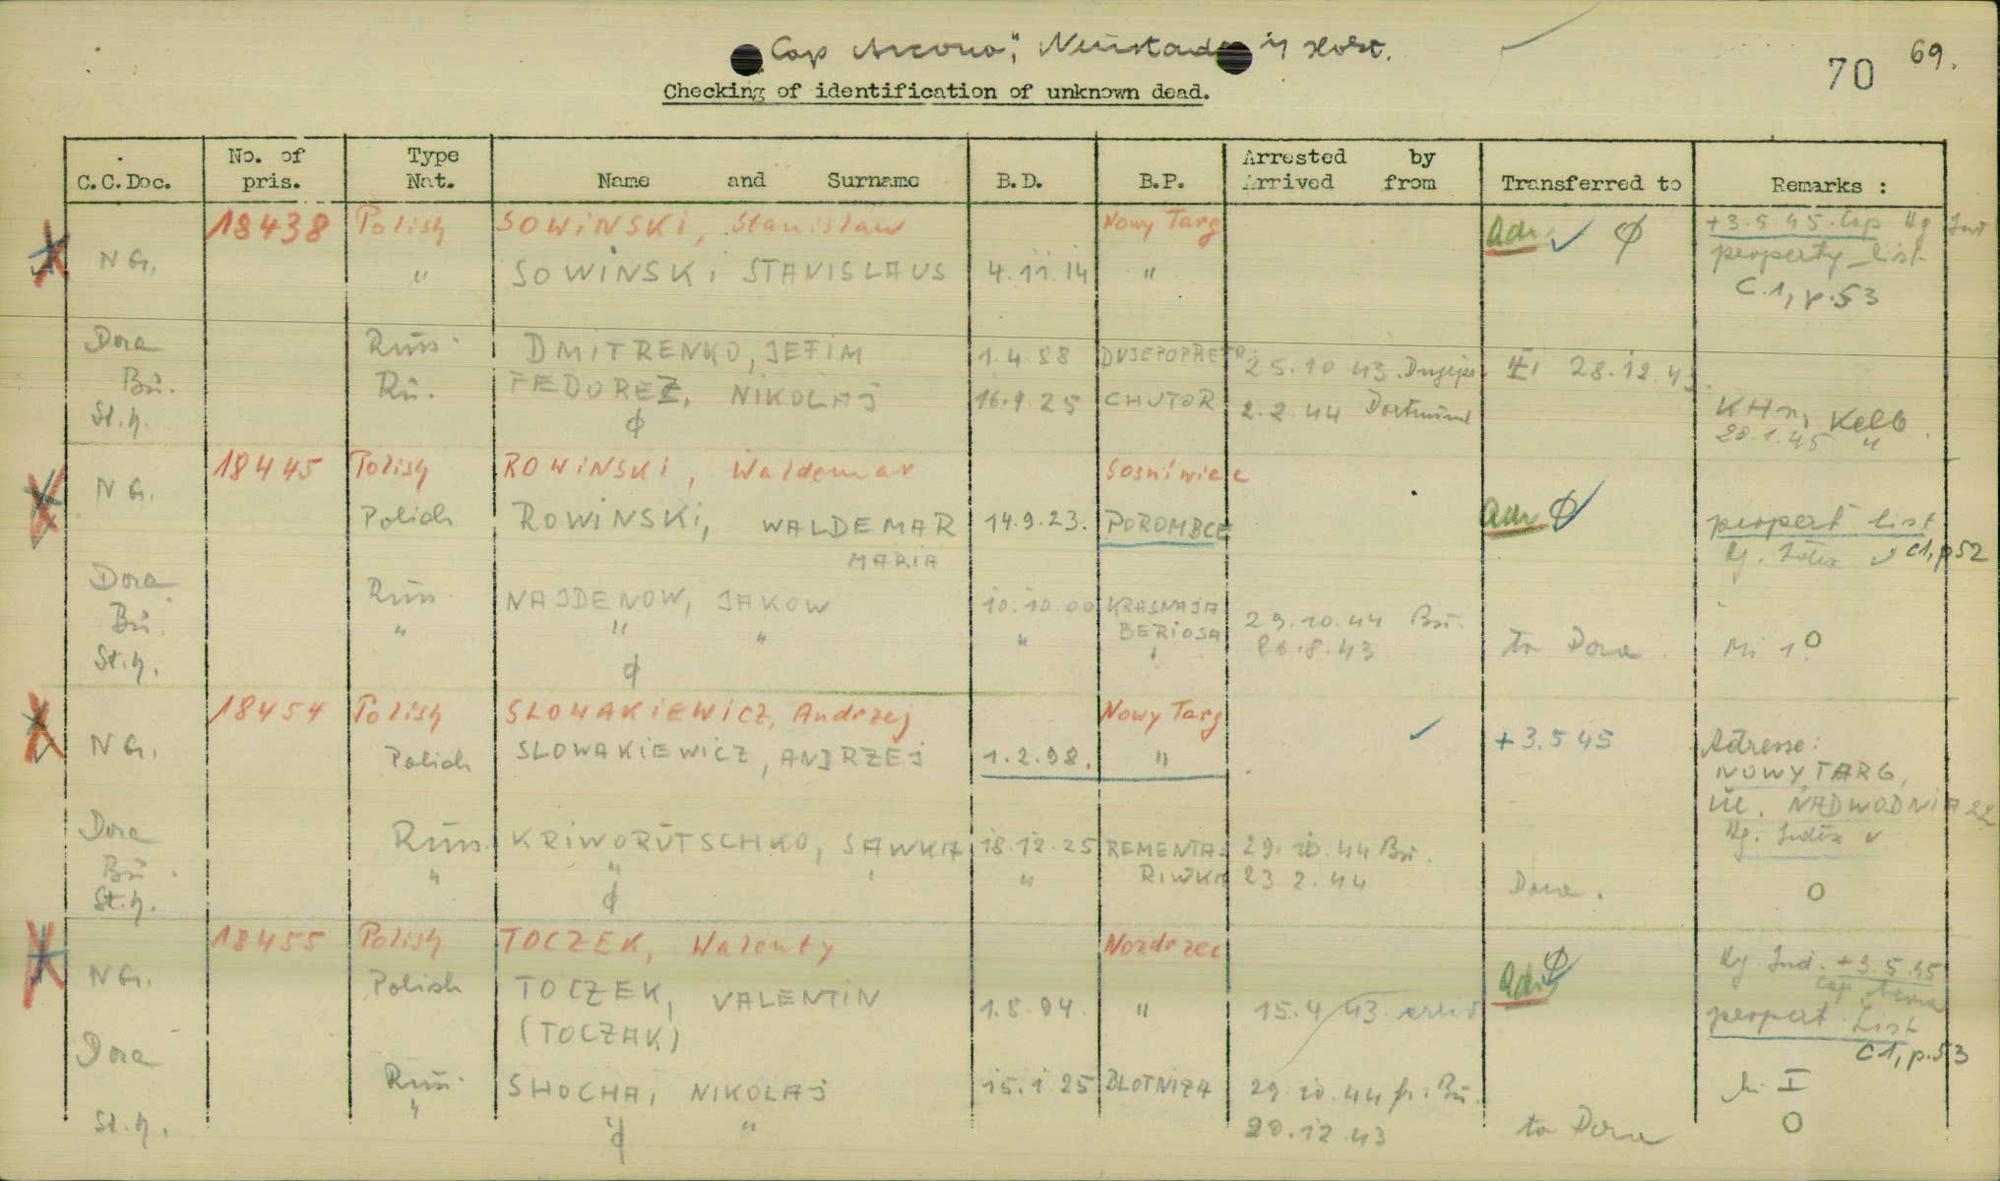 "Cap Arcona", Neustadt i/ Holst.
69.
70
Checking of identification of unknown dead.
C.C.Doc. No. of pris. Type Nat. Name and Surname B.D. B.P. Arrested by Arrived from Transferred to Remarks :
18438 Polish SOWiNSKi, Stanislaw Nowy Targ Adr. φ +3.5 45. Cap Hg Ind
NG. " SOWiNSKi STANISLAUS 4.11.14 " property list
C.1, p.53
Dora Russ. DMiTRENKO, JEFiM 1.4.88 25.10 43. 28.12.43.
Bu. Ru. FEDOREZ, NiKOLAJ 16.9.25 CHUTOR 2.2.44 Dortmund
St.y. φ 20.1.45 "
18445 Polish ROWiNSKi, Waldemar Sosniwiec
NG. Polish ROWiNSKi, WALDEMAR 14.9.23. POROMBCE Adr φ propert list
MARiA Hg. Index v C1, p52
Dora Russ. NAJDENOW, JAKOW 10.10.00 KRASNAJA
Bu. " " " " BERiOSA 29.10.44 Bu.
St.y. φ " 26.8.43 to Dora. Mi 1 O
18454 Polish SLOWAKiEWiCZ, Andrzej Nowy Targ
NG. Polish SLOWAKiEWiCZ, ANDRZEJ 1.2.98. " +3.5 45 Adresse:
NOWY TARG,
UL. NADWODNiA 22
Hg. Index v
Dora Russ. KRiWORUTSCHKO, SAWKA 18.12.25 REMENTA- 29.10.44 Bu.
Bu. " " " " RiWKA 23 2.44 Dora. O
St.y. φ
18455 Polish TOCZEK, Walenty Nozdrzec
NG. Polish TOCZEK, VALENTiN 1.8.94. " 15.4 43 Adr φ Hg Ind. +3.5.45
(TOCZAK) Cap Arcona
propert. List
C1, p.53
Dora Russ. SHOCHA, NiKOLAJ 15.1 25 BLOTNiZA 29.10.44 fr. Bu. I
" φ "
St.y. 20.12.43 to Dora O